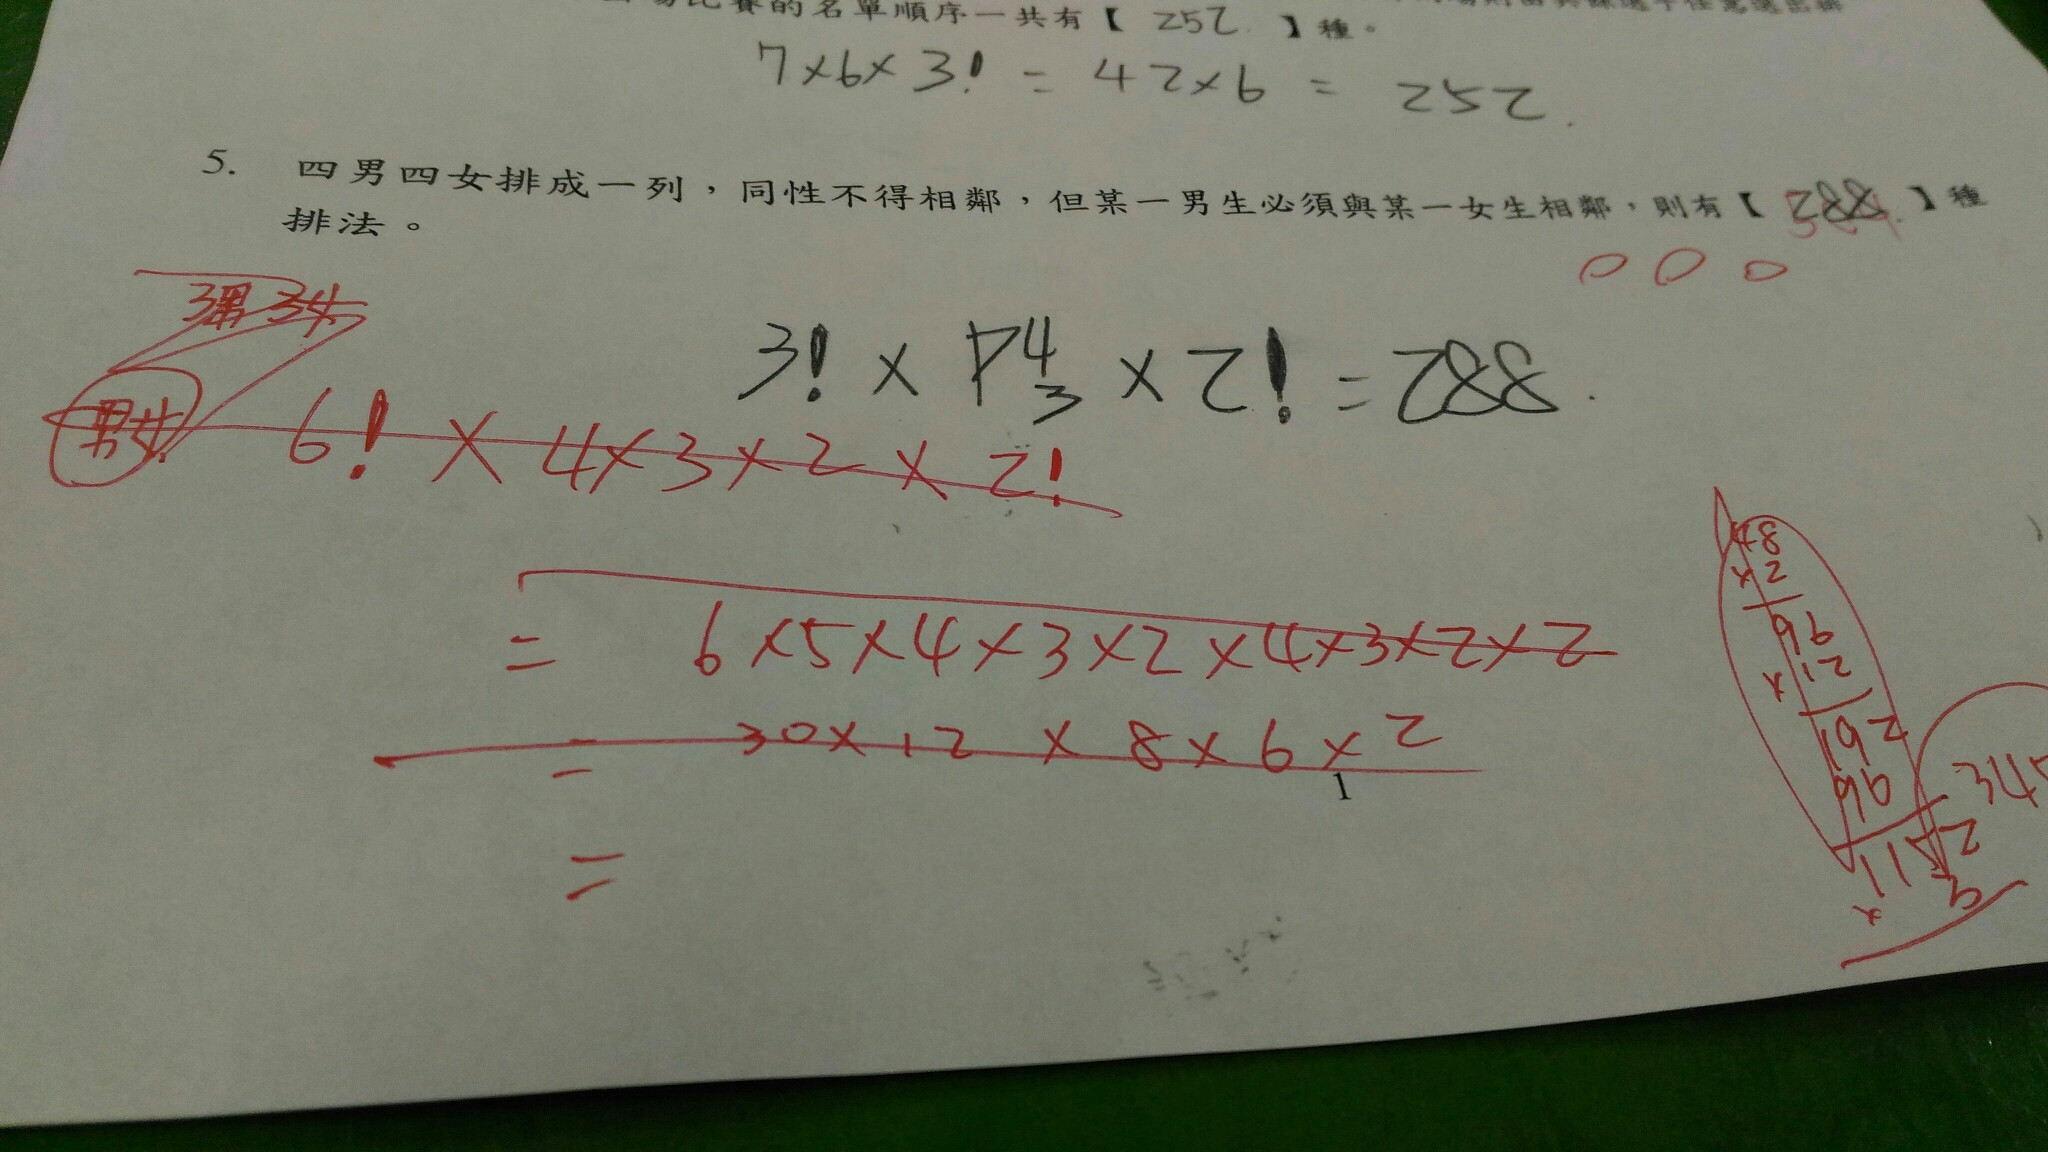 比賽的名單順序一共有【 252 】種。
7×6×3! = 42×6 = 252.
5. 四男四女排成一列，同性不得相鄰，但某一男生必須與某一女生相鄰，則有【 288 】種
排法。
000
3男 3女
3! × P⁴₃ × 2! = 288.
男女 6! × 4×3×2 × 2!
= 6×5×4×3×2×4×3×2×2
= 30×12 × 8×6×2
1
=
48
×2
96